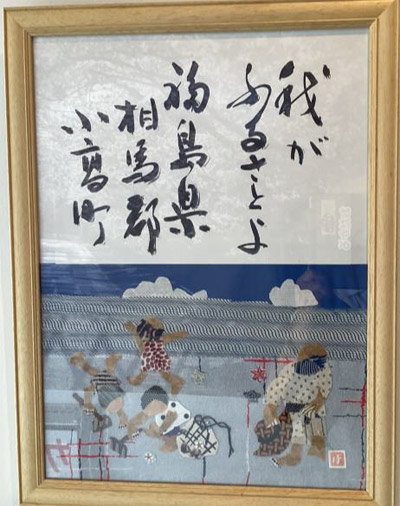 我が
ふるさとよ
福島県
相馬郡
小高町